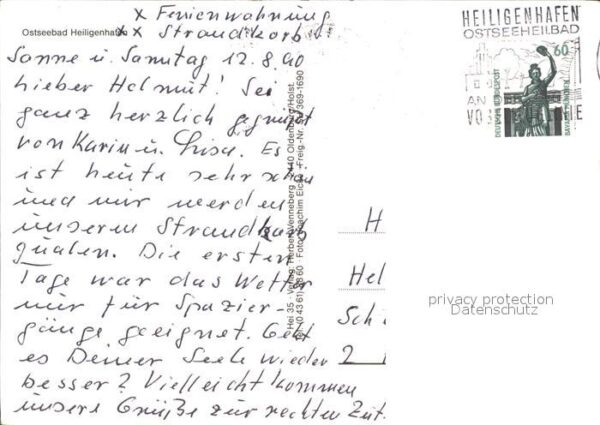 x Ferienwohnung
Ostseebad Heiligenhafen
xx Strandkorb
Sonne u. Samstag 12.8.90
lieber Helmut! Sei
ganz herzlich gegrüßt
von Karin u. Lisa. Es
ist heute sehr schön
und wir werden
unseren Strandkorb
Die ersten
Tage war das Wetter
nur für Spazier-
gänge geeignet. Geht
es Deiner Seele wieder
besser? Vielleicht kommen
unsere Grüße zur rechten Zeit.
Hei 35 · Verlag Herbert Wenneberg 2440 Oldenburg/Holst.
Tel. (0 43 61) 60 · Foto: Joachim Eick · Freig.-Nr. 369-1690
HEILIGENHAFEN
OSTSEEHEILBAD
60
DEUTSCHE BUNDESPOST
BAVARIA MÜNCHEN
AN
VO
H
Hel
Schi
2
privacy protection
Datenschutz